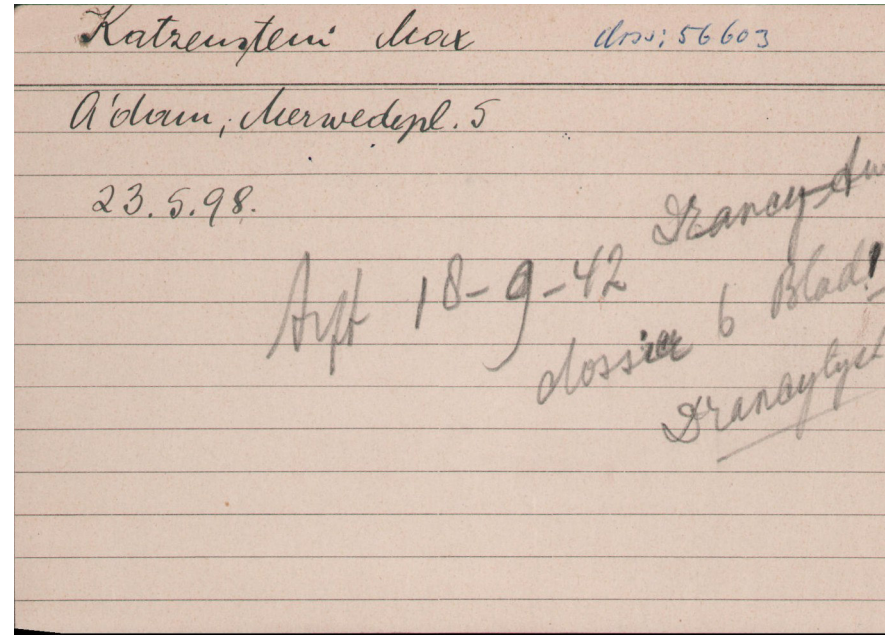 Katzenstein Max doss: 56603
A'dam, Merwedepl. 5
23.5.98.
18-9-42 Drancy
dossier 6 Blad 1
Drancylyst